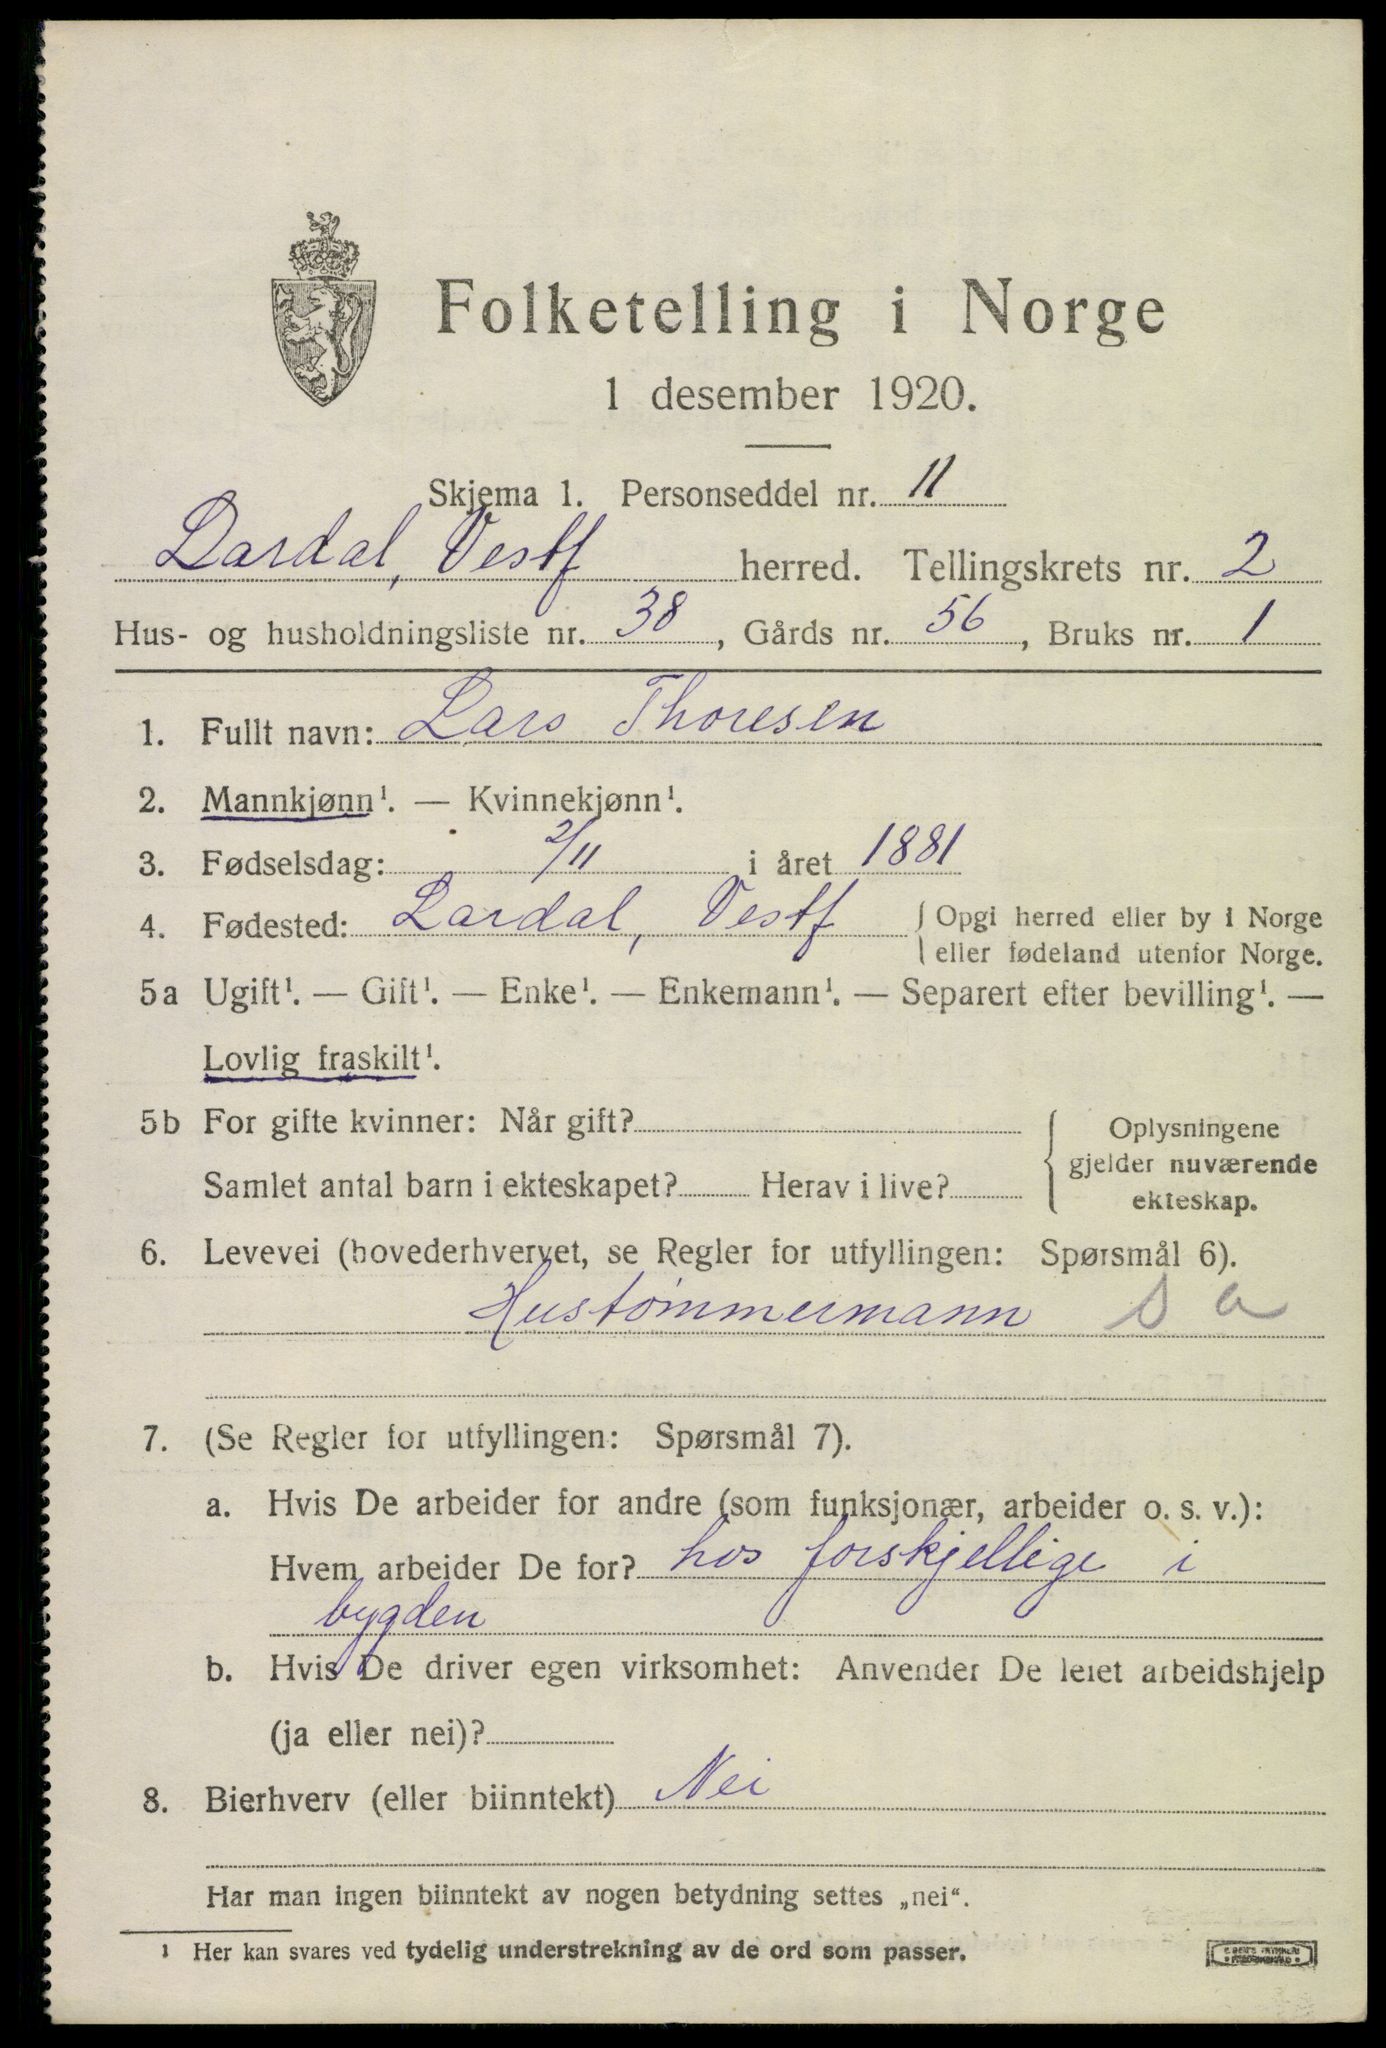 Folketelling i Norge
1 desember 1920.
Skjema 1. Personseddel nr. 11
Lardal, Vestf herred. Tellingskrets nr. 2
Hus- og husholdningsliste nr. 38, Gårds nr. 56, Bruks nr. 1
1. Fullt navn: Lars Thoresen
2. Mannkjønn¹. — Kvinnekjønn¹.
3. Fødselsdag: 2/11 i året 1881
4. Fødested: Lardal, Vestf { Opgi herred eller by i Norge
eller fødeland utenfor Norge.
5a Ugift¹. — Gift¹. — Enke¹. — Enkemann¹. — Separert efter bevilling¹. —
Lovlig fraskilt¹.
5b For gifte kvinner: Når gift?
Samlet antal barn i ekteskapet? Herav i live?
{ Oplysningene
gjelder nuværende
ekteskap.
6. Levevei (hovederhvervet, se Regler for utfyllingen: Spørsmål 6).
Hustømmermann s a
7. (Se Regler for utfyllingen: Spørsmål 7).
a. Hvis De arbeider for andre (som funksjonær, arbeider o. s. v.):
Hvem arbeider De for? hos forskjellige i
bygden
b. Hvis De driver egen virksomhet: Anvender De leiet arbeidshjelp
(ja eller nei)?
8. Bierhverv (eller biinntekt) Nei
Har man ingen biinntekt av nogen betydning settes „nei“.
¹ Her kan svares ved tydelig understrekning av de ord som passer.